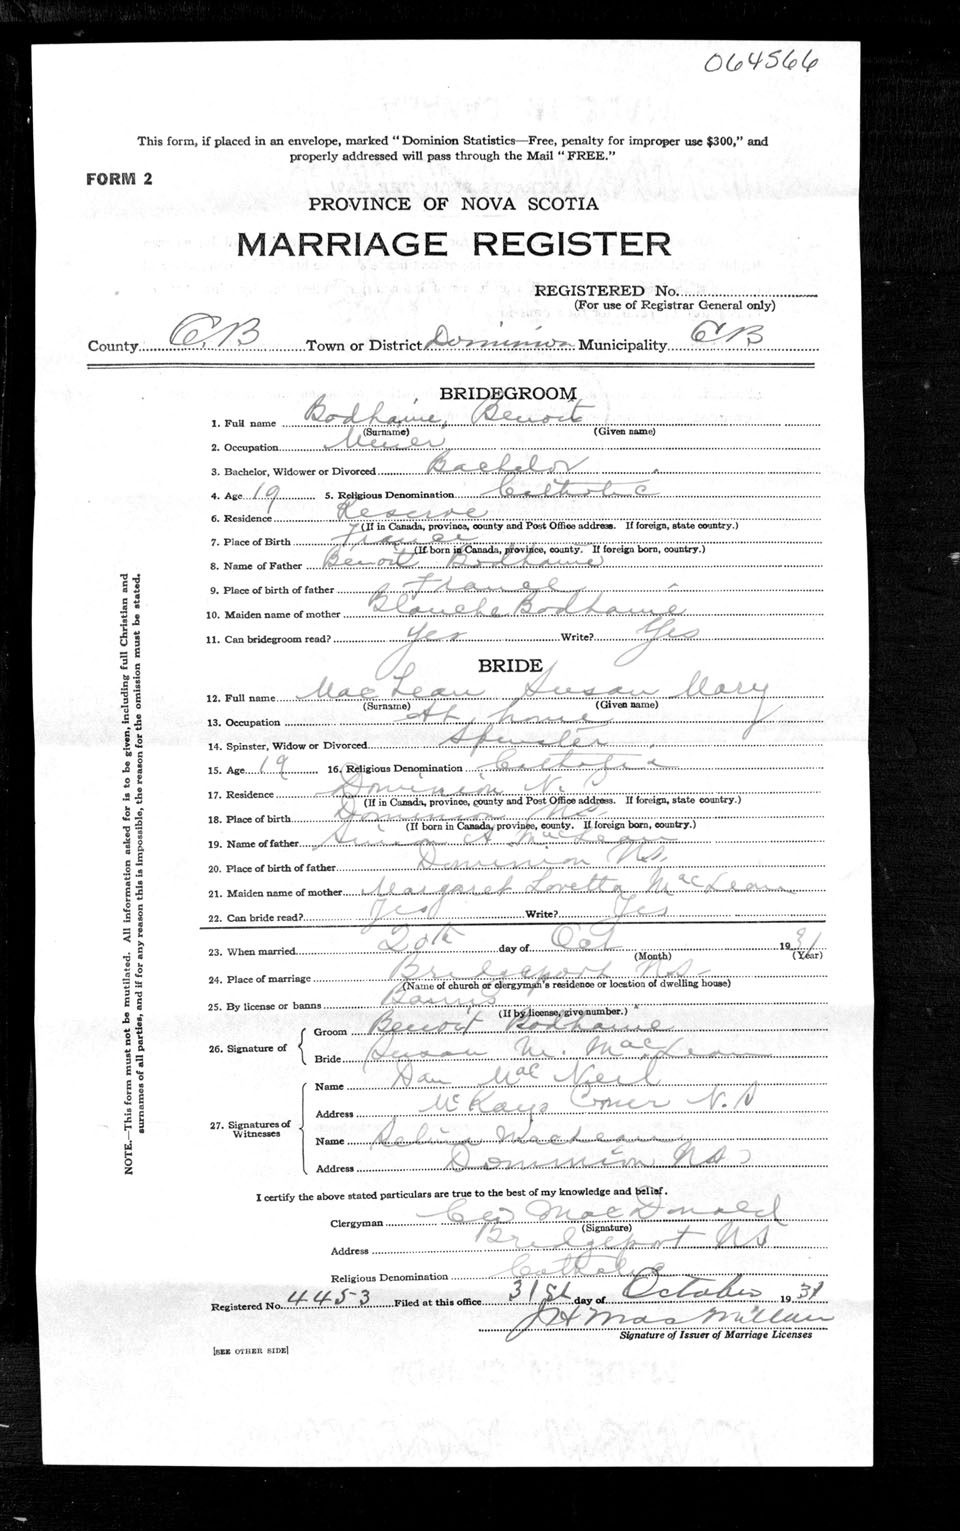 064566
This form, if placed in an envelope, marked "Dominion Statistics—Free, penalty for improper use $300," and
properly addressed will pass through the Mail "FREE."
FORM 2
PROVINCE OF NOVA SCOTIA
MARRIAGE REGISTER
REGISTERED No.
(For use of Registrar General only)
County C.B Town or District Dominion Municipality CB
BRIDEGROOM
1. Full name Bodhaine, Benoit
(Surname) (Given name)
2. Occupation Miner
3. Bachelor, Widower or Divorced Bachelor
4. Age 19 5. Religious Denomination Catholic
6. Residence Reserve
(If in Canada, province, county and Post Office address. If foreign, state country.)
7. Place of Birth France
(If born in Canada, province, county. If foreign born, country.)
8. Name of Father Benoit Bodhaine
9. Place of birth of father France
10. Maiden name of mother Blanche Bodhaine
11. Can bridegroom read? Yes Write? Yes
BRIDE
12. Full name MacLean Susan Mary
(Surname) (Given name)
13. Occupation At home
14. Spinster, Widow or Divorced Spinster
15. Age 19 16. Religious Denomination Catholic
17. Residence Dominion N.S
(If in Canada, province, county and Post Office address. If foreign, state country.)
18. Place of birth Dominion NS
(If born in Canada, province, county. If foreign born, country.)
19. Name of father Simon A MacLean
20. Place of birth of father Dominion NS.
21. Maiden name of mother Margaret Loretta MacLean
22. Can bride read? Yes Write? Yes
23. When married 20th day of Oct 1931
(Month) (Year)
24. Place of marriage Bridgeport NS
(Name of church or clergyman's residence or location of dwelling house)
25. By license or banns Banns
(If by license, give number.)
26. Signature of
Groom Benoit Bodhaine
Bride Susan M. MacLean
27. Signatures of Witnesses
Name Dan MacNeil
Address McKays Corner N.S
Name MacLean
Address Dominion NS
I certify the above stated particulars are true to the best of my knowledge and belief.
Clergyman MacDonald
(Signature)
Address Bridgeport NS
Religious Denomination Catholic
Registered No. 4453 Filed at this office 31st day of October 1931
J H MacMillan
Signature of Issuer of Marriage Licenses
[SEE OTHER SIDE]
NOTE.—This form must not be mutilated. All information asked for is to be given, including full Christian and
surnames of all parties, and if for any reason this is impossible, the reason for the omission must be stated.